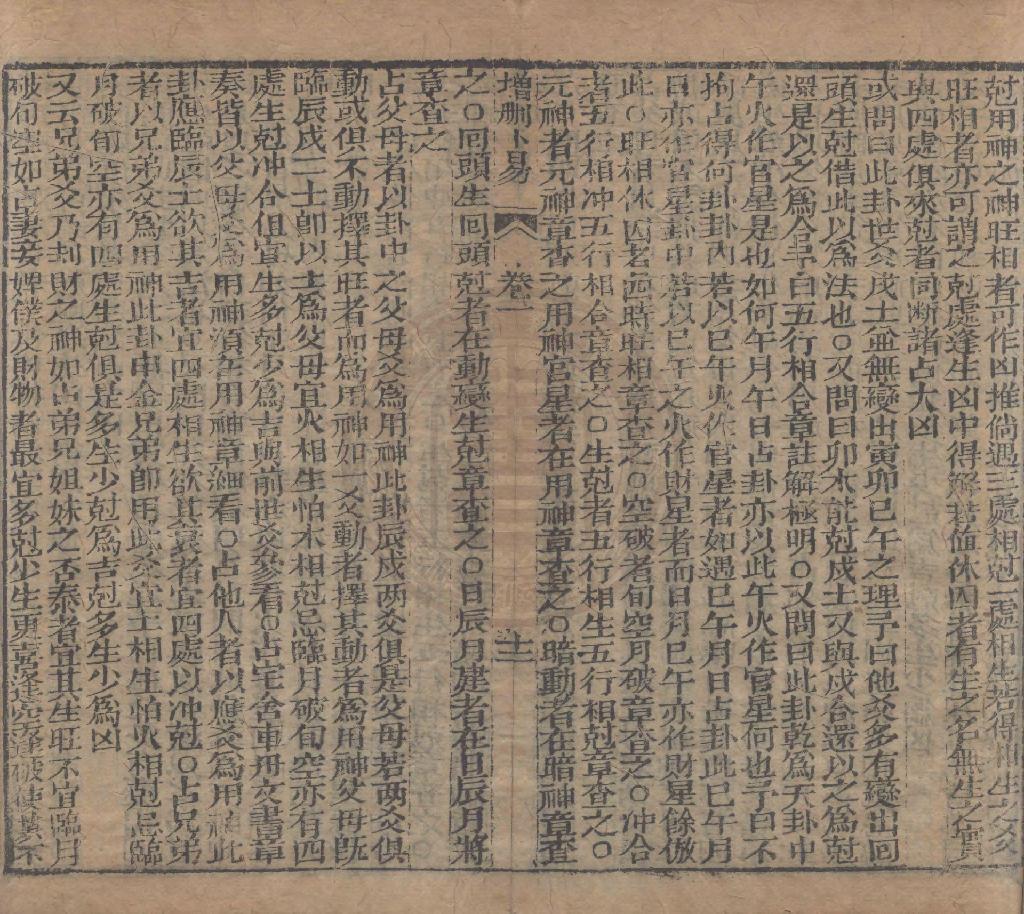 尅用神之神旺相者可作凶推倘遇三處相尅一處相生若得相生之爻
旺相者亦可謂之尅處逢生凶中得解若值休囚者有生之名無生之實
與四處俱來尅者同斷諸占大凶
或問曰此卦世爻戌土並無變出寅卯巳午之理予曰他爻多有變出回
頭生尅借此以為法也○又問曰卯木能尅戌土又與戌合還以之為尅
還是以之為合予曰五行相合章註解極明○又問曰此卦乾為天卦中
午火作官星是也如何午月午日占卦亦以此午火作官星何也予曰不
拘占得何卦卦內若以巳午火作官星者如遇巳午月日占卦此巳午月
日亦作官星卦中若以巳午之火作財星者而日月巳午亦作財星餘倣
此○旺相休囚者四時旺相章查之○空破者旬空月破章查之○冲合
者五行相冲五行相合章查之○生尅者五行相生五行相尅章查之○
元神者元神章查之用神官星者在用神章查之○暗動者在暗動章查
增刪卜易 卷一 十二
之○回頭生回頭尅者在動變生尅章查之○日辰月建者在日辰月將
章查之
占父母者以卦中之父母爻為用神此卦辰戌两爻俱是父母若两爻俱
動或俱不動擇其旺者而為用神如一爻動者擇其動者為用神父母旣
臨辰戌二土卽以土為父母宜火相生怕木相尅忌臨月破旬空亦有四
處生尅冲合但宜生多尅少為吉與前世爻叅看○占宅舍車舟文書章
奏皆以父母爻為用神須在用神章細看○占他人者以應爻為用神此
卦應臨辰土欲其吉者宜四處相生欲其衰者宜四處以冲尅○占兄弟
者以兄弟爻為用神此卦申金兄弟卽用此爻宜土相生怕火相尅忌臨
月破旬空亦有四處生尅俱是多生少尅為吉尅多生少為凶
又云兄弟爻乃刦財之神如占弟兄姐妹之否泰者宜其生旺不宜臨月
破旬空如占妻妾婢僕及財物者最宜多尅少生更喜逢空逢破使其不